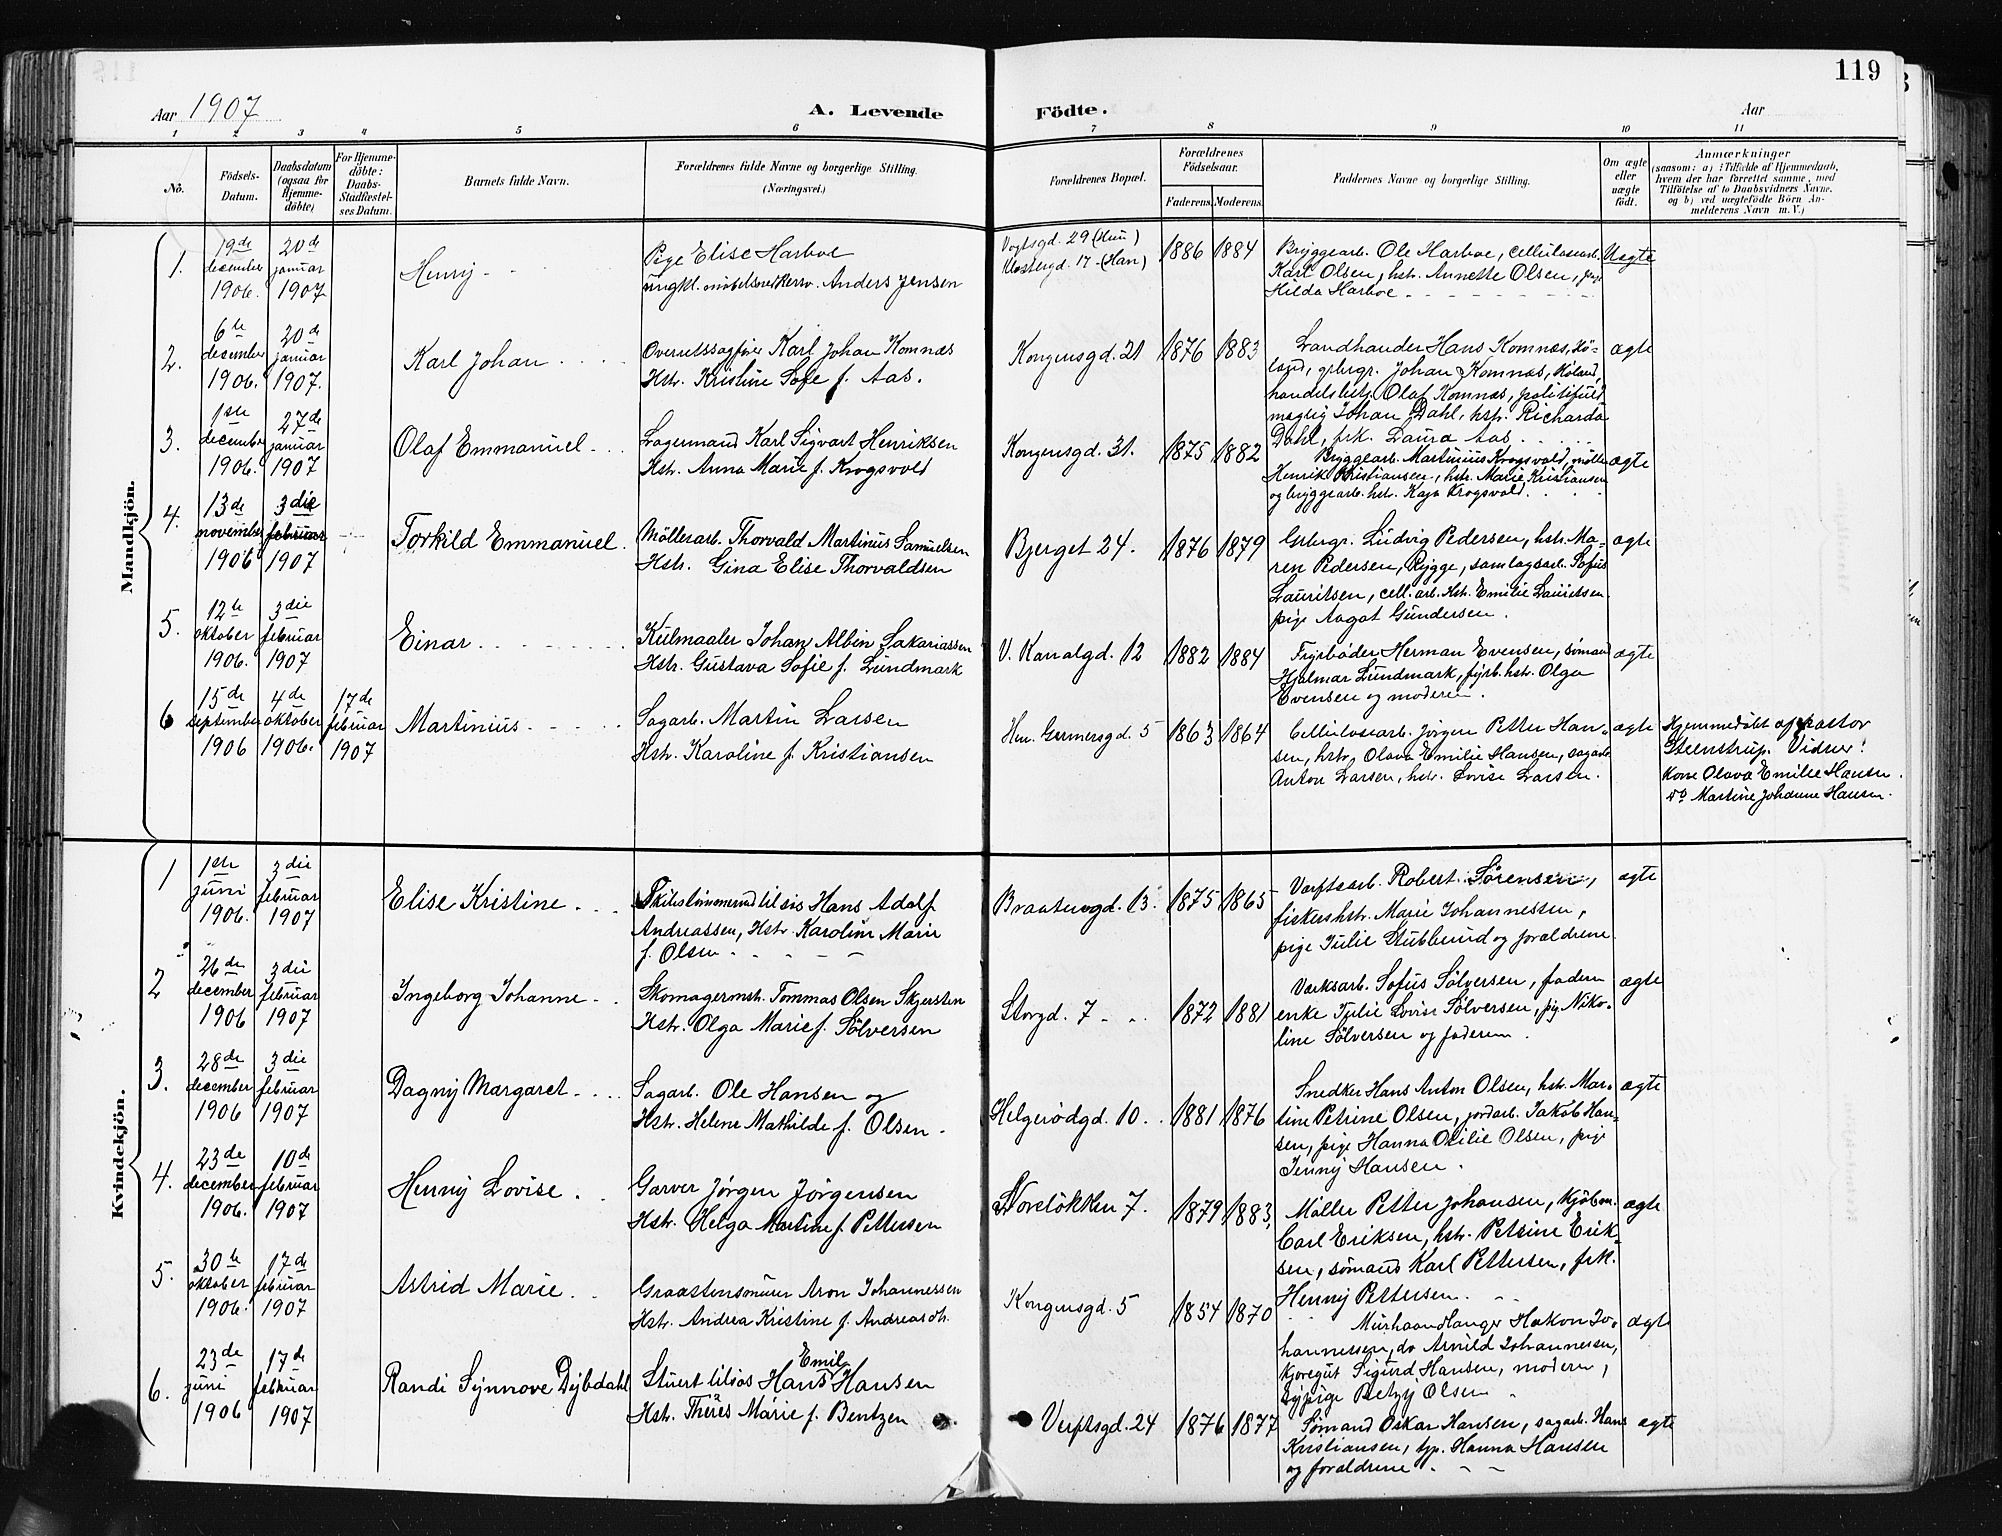 119
Aar 1907
A. Levende Födte.
Aar
1 2 3 4 5 6 7 8 9 10 11
No.
Födsels-Datum.
Daabsdatum (ogsaa for Hjemme-döbte)
For Hjemme-döbte: Daabs-Stadfæstel-ses Datum.
Barnets fulde Navn.
Forældrenes fulde Navne og borgerlige Stilling. (Næringsvei.)
Forældrenes Bopæl.
Forældrenes Födselsaar.
Faderens. Moderens.
Faddernes Navne og borgerlige Stilling.
Om ægte eller uægte födt.
Anmærkninger
(saasom: a) i Tilfælde af Hjemmedaab,
hvem der har forrettet samme, med
Tilföielse af to Daabsvidners Navne,
og b) ved uægtefödte Börn An-
melderens Navn m. V.)
Mandkjön.
1. 19de december 1906. 20de januar 1907
Henry
Pige Elise Harboe
ungkl. Anders Jensen
Vogtsgd. 29 (Hun)
Klostergd. 17 (Han)
1886 1884
Bryggearb. Ole Harboe, cellulosearb.
Karl Olsen, hst. Annette Olsen, pige
Hilda Harboe
Uegte
2. 6te december 1906. 20de januar 1907.
Karl Johan
Overretssagfører Karl Johan Komnæs
Hstr. Kristine Sofie f. Aas.
Kongensgd. 21
1876 1883
Landhandler Hans Komnæs, Hö-
land, grbrgr. Johan Komnæs, Höland,
handelsbetj. Olaf Komnæs, politifuld-
mægtig Johan Dahl, hstr. Richarda
Dahl, frk. Laura Aas
ægte
3. 1ste december 1906. 27de januar 1907
Olaf Emmanuel
Lagermand Karl Sigvart Henriksen
Hstr. Anna Marie f. Krogsvold
Kongensgd. 31.
1875 1882
Bryggearb. Martinius Krogsvold, møller
Henrik Kristiansen, hstr. Marie Kristiansen
og bryggearb. hstr. Kaja Krogsvold.
ægte
4. 13de november 1906 3die februar 1907
Torkild Emmanuel.
Möllerarb. Thorvald Martinus Samuelsen
Hstr. Gina Elise Thorvaldsen
Bjerget 24.
1876 1879
Grbrgr. Ludvig Pedersen, hstr. Ma-
ren Pedersen, Rygge, samlagsarb. Sofus
Lauritsen, cell. arb. hstr. Emilie Lauritsen
pige Aagot Gundersen.
ægte
5. 12te oktober 1906. 3die februar 1907
Einar
Kulmaaler Johan Albin Sakariassen
Hstr. Gustava Sofie f. Lundmark
V. Kanalgd. 12
1882 1884
Fyrbøder Herman Evensen, sömand
Hjalmar Lundmark, fyrb. hstr. Olga
Evensen og moderen.
ægte
6 15de september 1906 4de oktober 1906. 17de februar 1907
Martinius
Sagarb. Martin Larsen
Hstr. Karoline f. Kristiansen
Hen. Gernersgd. 5
1863 1864
Cellulosearb. Jørgen Petter Han-
sen, hstr. Olava Emilie Hansen, sagarb.
Anton Larsen, hstr. Lovise Larsen.
ægte
Hjemmedøbt af pastor
Steenstrup. Vidner:
Kone Olava Emilie Hansen.
do Martine Johanne Hansen.
Kvindekjön.
1 1ste juni 1906. 3die februar 1907
Elise Kristine
Skibstømmermand tilsös Hans Adolf
Andreassen, Hstr. Karoline Marie
f. Olsen
Braatengd. 13.
1875 1865
Værftsarb. Robert Sørensen,
fiskershstr. Marie Johannessen,
pige Julie Stubberud og forældrene
ægte
2 26de december 1906 3die februar 1907
Ingeborg Johanne
Skomagermstr. Tommas Olsen Skjersten
Hstr. Olga Marie f. Sölversen
Storgd. 7
1872 1881
Værksarb. Sofus Sölversen, faderen
enke Julie Lovise Sölversen, pig Niko-
line Sölversen og faderen.
ægte
3. 28de december 1906 3die februar 1907
Dagny Margaret
Sagarb. Ole Hansen og
Hstr. Helene Mathilde f. Olsen
Helgerödgd. 10.
1881 1876
Snedker Hans Anton Olsen, hstr. Mar-
tine Petrine Olsen, jordarb. Jakob Han-
sen, pige Hanna Otilie Olsen, pige
Jenny Hansen.
ægte
4. 23de december 1906. 10de februar 1907
Henny Lovise
Garver Jörgen Jörgensen
Hstr. Helga Martine f. Pettersen
Noreløkken 7.
1879 1883
Møller Petter Johansen, kjöbm.
Carl Eriksen, hstr. Petrine Erik-
sen, sömand Karl Pettersen, frk.
Henny Pettersen.
ægte
5. 30te oktober 1906. 17de februar 1907
Astrid Marie
Graastensmurer Aron Johannessen
Hstr. Andrea Kristine f. Andreasdtr.
Kongensgd. 5
1854 1870
Murhaandlanger Hakon Jo-
hannessen, do Arnild Johannessen,
kjøregut Sigurd Hansen, moderen,
sypige Betzy Olsen
ægte
6. 23de juni 1906 17de februar 1907
Randi Synnove Dybdahl
Stuert tilsös Hans Emil Hansen
Hstr. Theres Marie f. Bentzen
Verftsgd. 24
1876 1877
Sømand Oskar Hansen, sagarb. Hans
Kristiansen, tjp. Hanna Hansen
og forældrene.
ægte